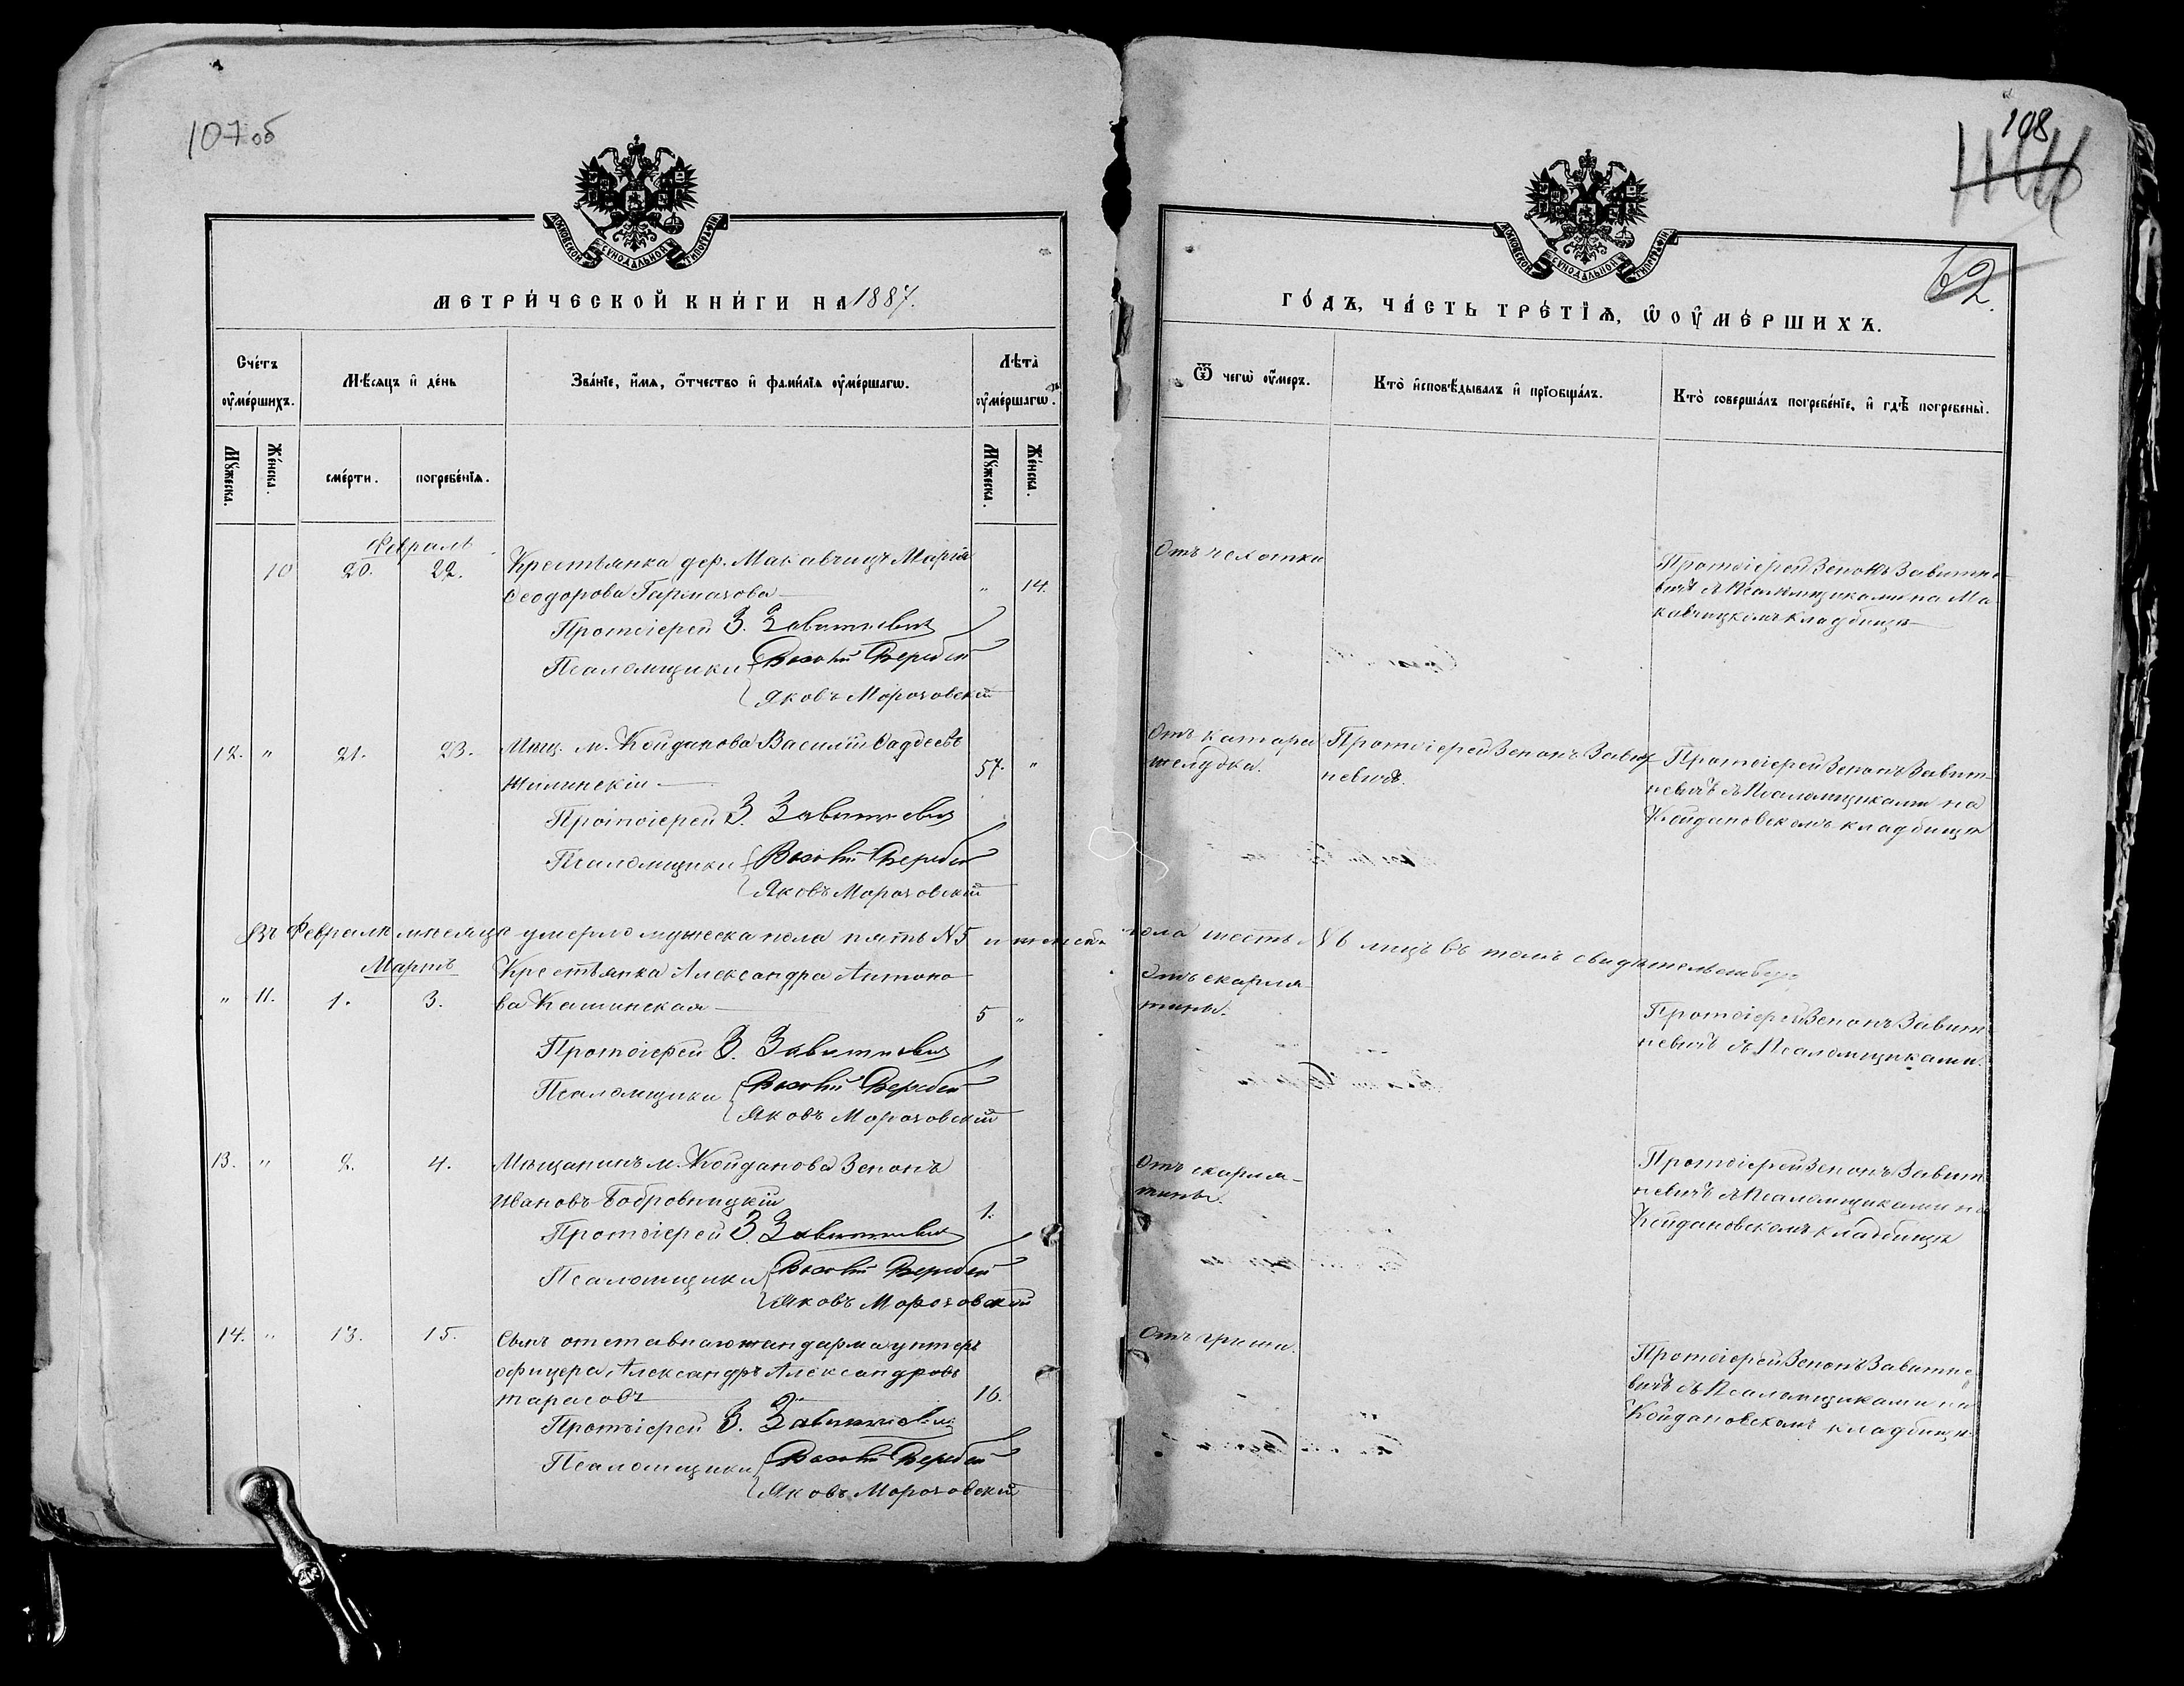 107 об
МОСКОВСКОЙ СѴНОДАЛЬНОЙ ТИПОГРАФІИ
МЕТРИ́ЧЕСКОЙ КНИ́ГИ НА 1887.
Счéтъ оу҆мéршихъ.
Мѣ́сяцъ и҆ дéнь
Звáнїе, и҆́мѧ, ѻ҆́тчество и҆ фамѝлїѧ оу҆мéршагѡ.
Лѣ́та оу҆мéршагѡ.
Мꙋ́жеска.
Жéнска.
смéрти.
погребéнїѧ.
Мꙋ́жеска.
Жéнска.
Февраль
10 20. 22. Крестьянка дер. Макавчицъ Марія
Ѳеодорова Гармазова „ 14.
Протоіерей З. Завитневичъ
Псаломщики Вербей
Яковъ Морозовскій
12. „ 21. 23. Мѣщ. м. Койданова Василій Ѳаддеевъ
Жилинскій 57. „
Протоіерей З. Завитневичъ
Псаломщики Вербей
Яковъ Морозовскій
Въ Февралѣ мѣсяцѣ умерло мужеска пола пять №5 и женска пола шесть №6 лицъ въ томъ свидѣтельствую
Мартъ
„ 11. 1. 3. Крестьянка Александра Антоно
ва Кашинская 5 „
Протоіерей З. Завитневичъ
Псаломщики Вербей
Яковъ Морозовскій
13. „ 2. 4. Мѣщанинъ м. Койданова Зенонъ
Ивановъ Бобровницкій 1.
Протоіерей З. Завитневичъ
Псаломщики Вербей
Яковъ Морозовскій
14. „ 13. 15. Сынъ отставнаго жандарма унтеръ
офицера Александръ Александровъ
Тарасовъ 16.
Протоіерей З. Завитневичъ
Псаломщики Вербей
Яковъ Морозовскій
108
62.
МОСКОВСКОЙ СѴНОДАЛЬНОЙ ТИПОГРАФІИ
ГÓДЪ, ЧÁСТЬ ТРÉТЇѦ, Ѡ҆ ОУ҆МÉРШИХЪ.
Ѿ чегѡ̀ оу҆́меръ.
Ктò и҆сповѣ́дывалъ и҆ прїѻбщáлъ.
Ктò совершáлъ погребéнїе, и҆ гдѣ̀ погребены̀.
Отъ чахотки
Протоіерей Зенонъ Завитне
вичъ съ Псаломщиками на Ма
кавчицкомъ кладбищѣ
Отъ катара
желудка.
Протоіерей Зенонъ Завит
невичъ.
Протоіерей Зенонъ Завит
невичъ съ Псаломщиками на
Койдановскомъ кладбищѣ
Отъ скарла
тины.
Протоіерей Зенонъ Завит
невичъ съ Псаломщиками.
Отъ скарла
тины.
Протоіерей Зенонъ Завит
невичъ съ Псаломщиками на
Койдановскомъ кладбищѣ
Протоіерей Зенонъ Завитне
вичъ съ Псаломщиками на
Койдановскомъ кладбищѣ